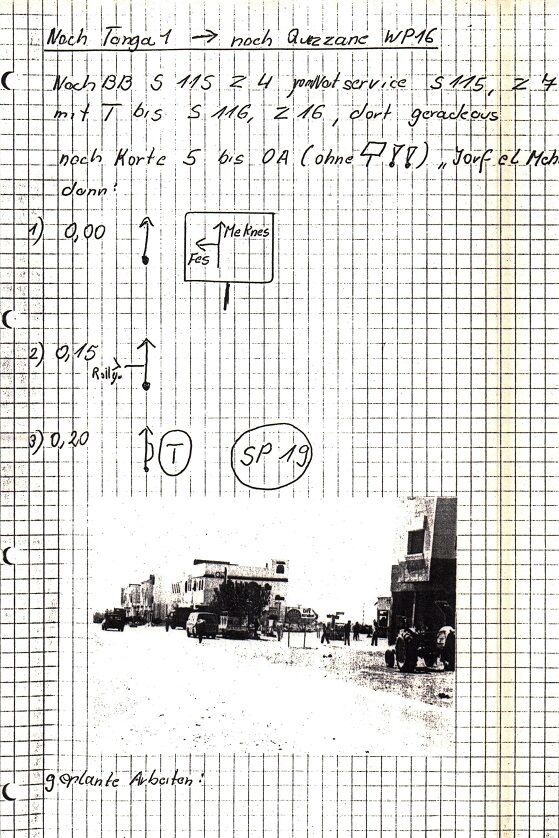 Nach Tanga 1 → nach Quezzane WP16
Nach BB S 115 Z 4 vom Notservice S 115, Z 7
mit T bis S 116, Z 16, dort geradeaus
nach Karte 5 bis OA (ohne !!) „Jorf el Meh
dann:
1) 0,00
Meknes
Fes
2) 0,15
Rally
3) 0,20
T
SP 19
geplante Arbeiten: